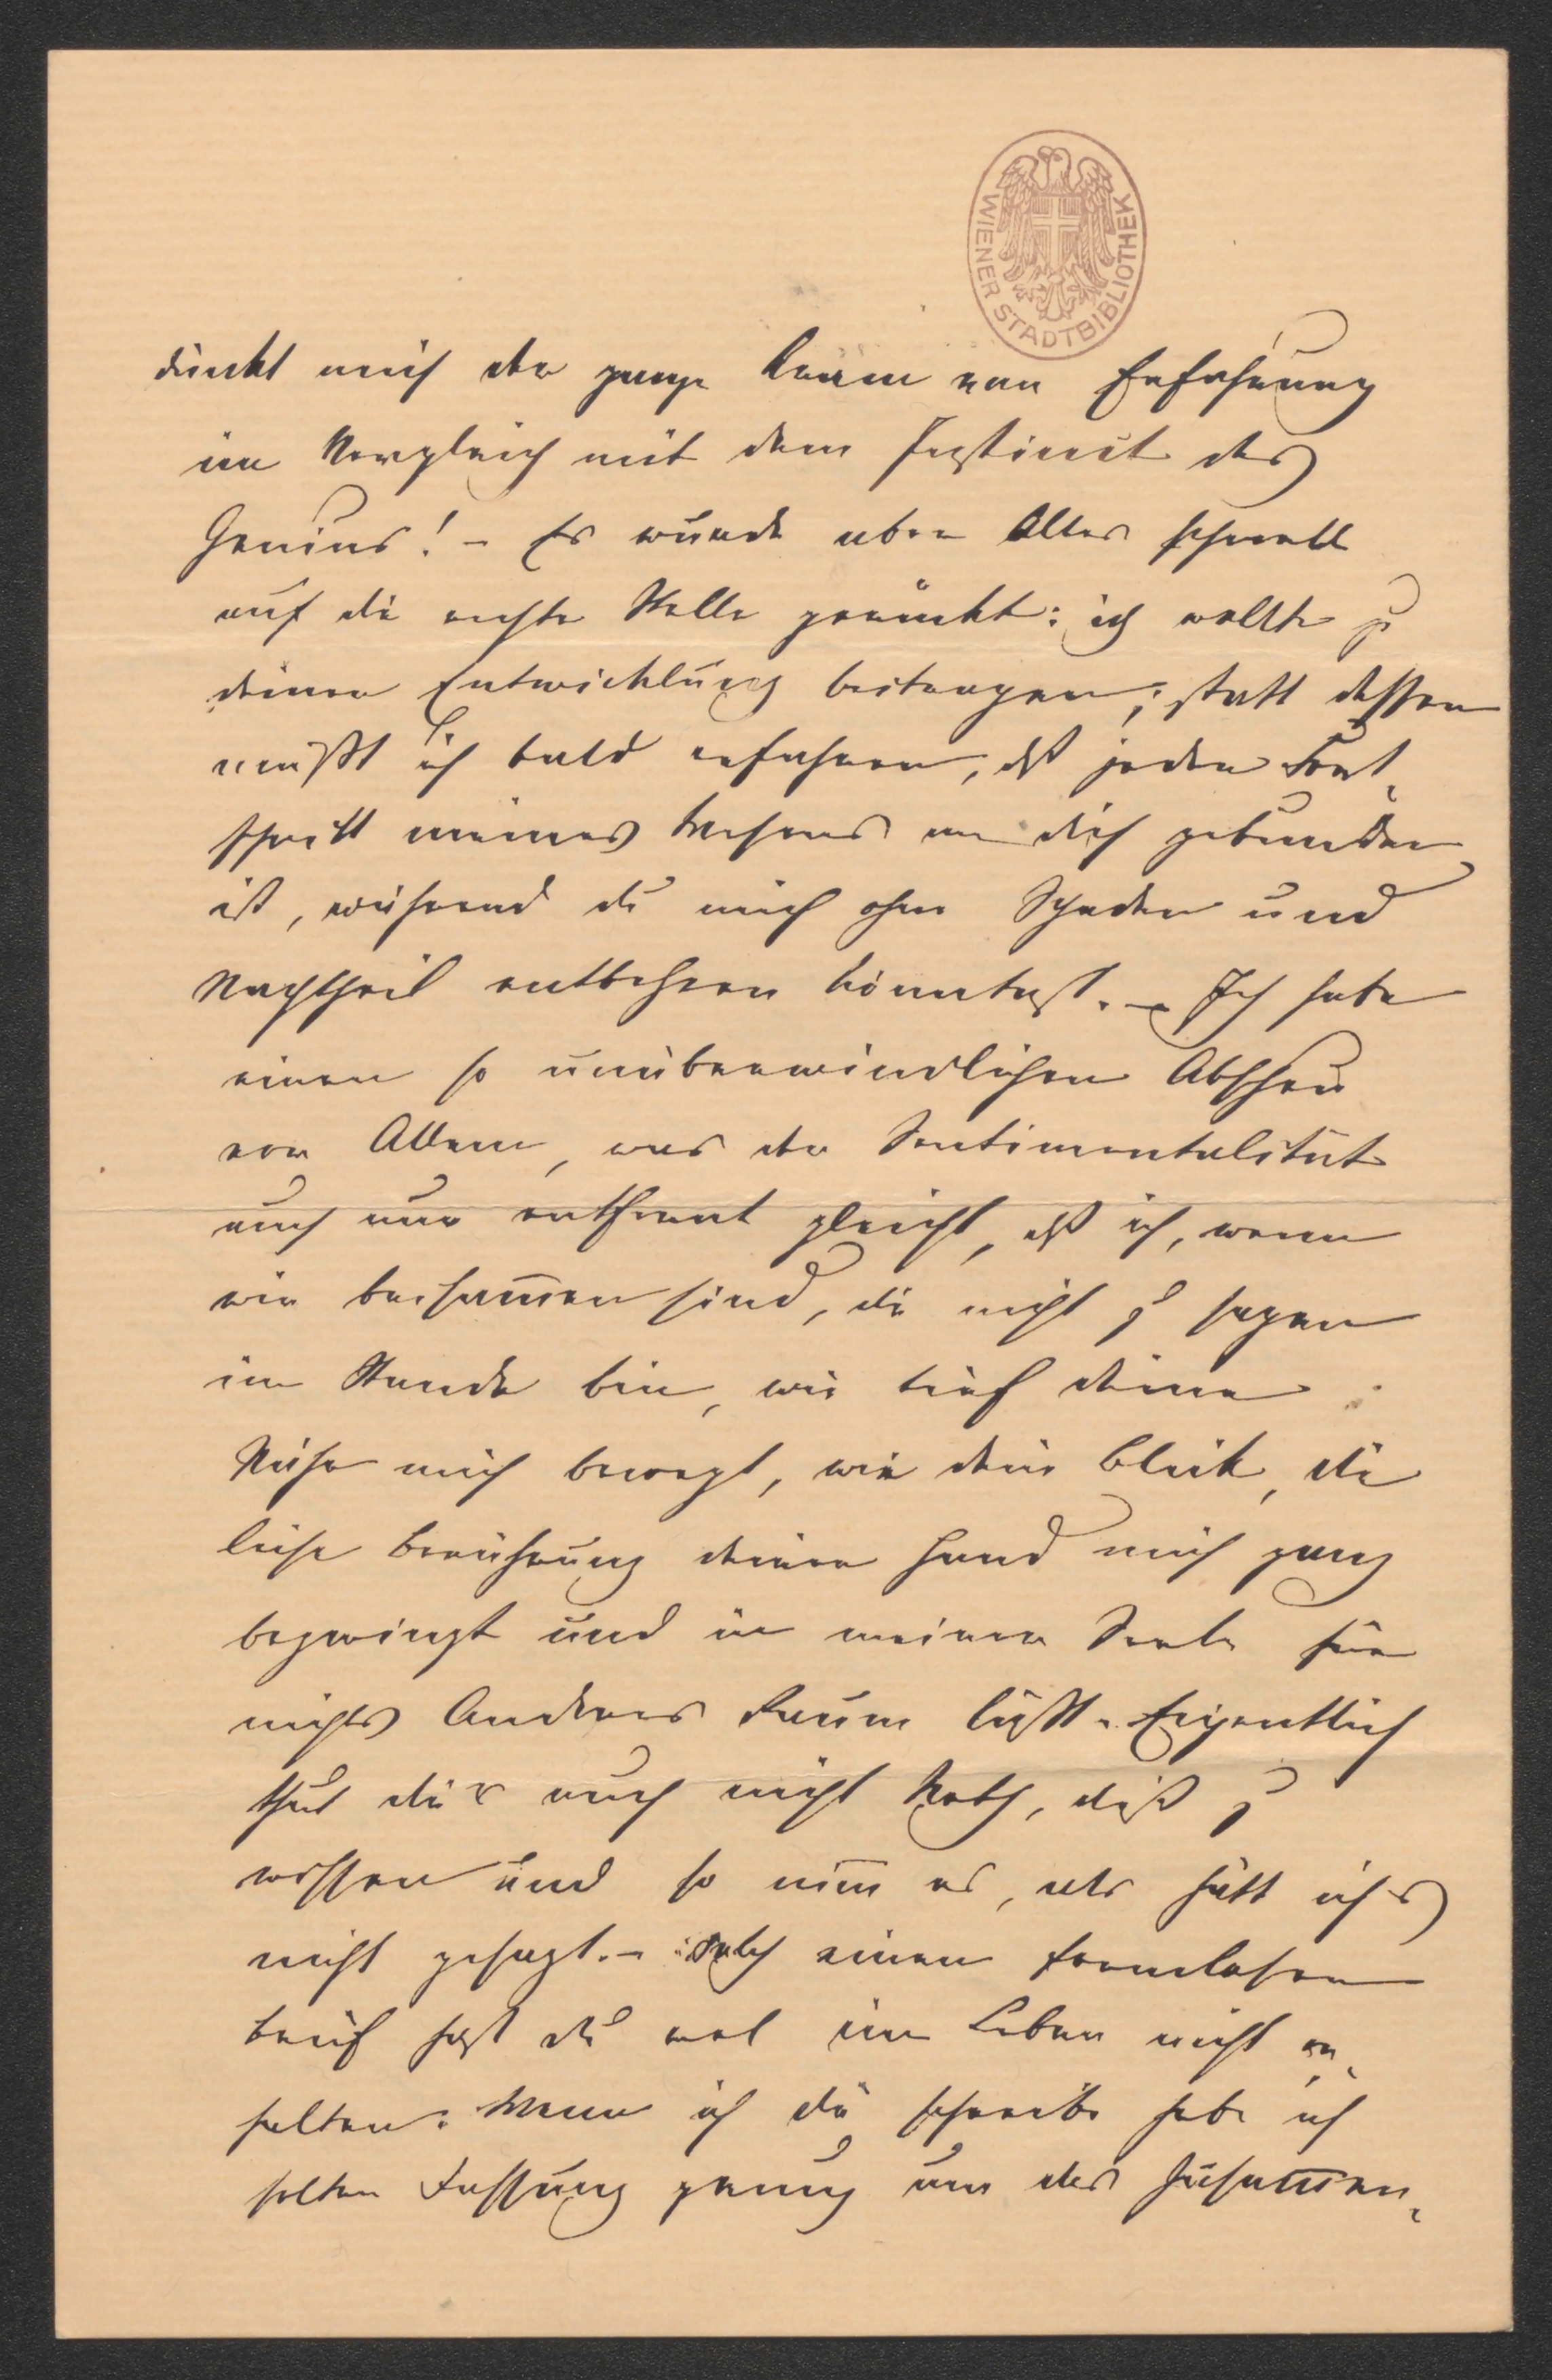 WIENER STADTBIBLIOTHEK
dünkt mich der ganze Kram von Erfahrung
im Vergleich mit dem Instinct des
Genius! – Es wurde aber Alles schnell
auf die rechte Stelle gerückt: ich wollte zu
deiner Entwicklung beitragen; statt dessen
mußt ich bald erfahren, dß jeder Fort-
schritt meines Wesens an dich gebunden
ist, während du mich ohne Schaden und
Nachtheil entbehren könntest. – Ich habe
einen so unüberwindlichen Abscheu
vor Allem, was der Sentimentalität
auch nur entfernt gleicht, dß ich, wenn
wir beisam̅en sind, dir nicht zu sagen
im Stande bin, wie tief deine
Nähe mich bewegt, wie dein Blick, die
leise Berührung deiner Hand mich ganz
bezwingt und in meiner Seele für
nichts Anderes Raum läßt. Eigentlich
thut dir's auch nicht Noth, dieß zu
wissen und so nim̅ es, als hätt ich's
nicht gesagt. – Solch einen formlosen
Brief hast du wol im Leben nicht er-
halten. Wenn ich dir schreibe habe ich
selten Fassung genug um des Zusam̅en-